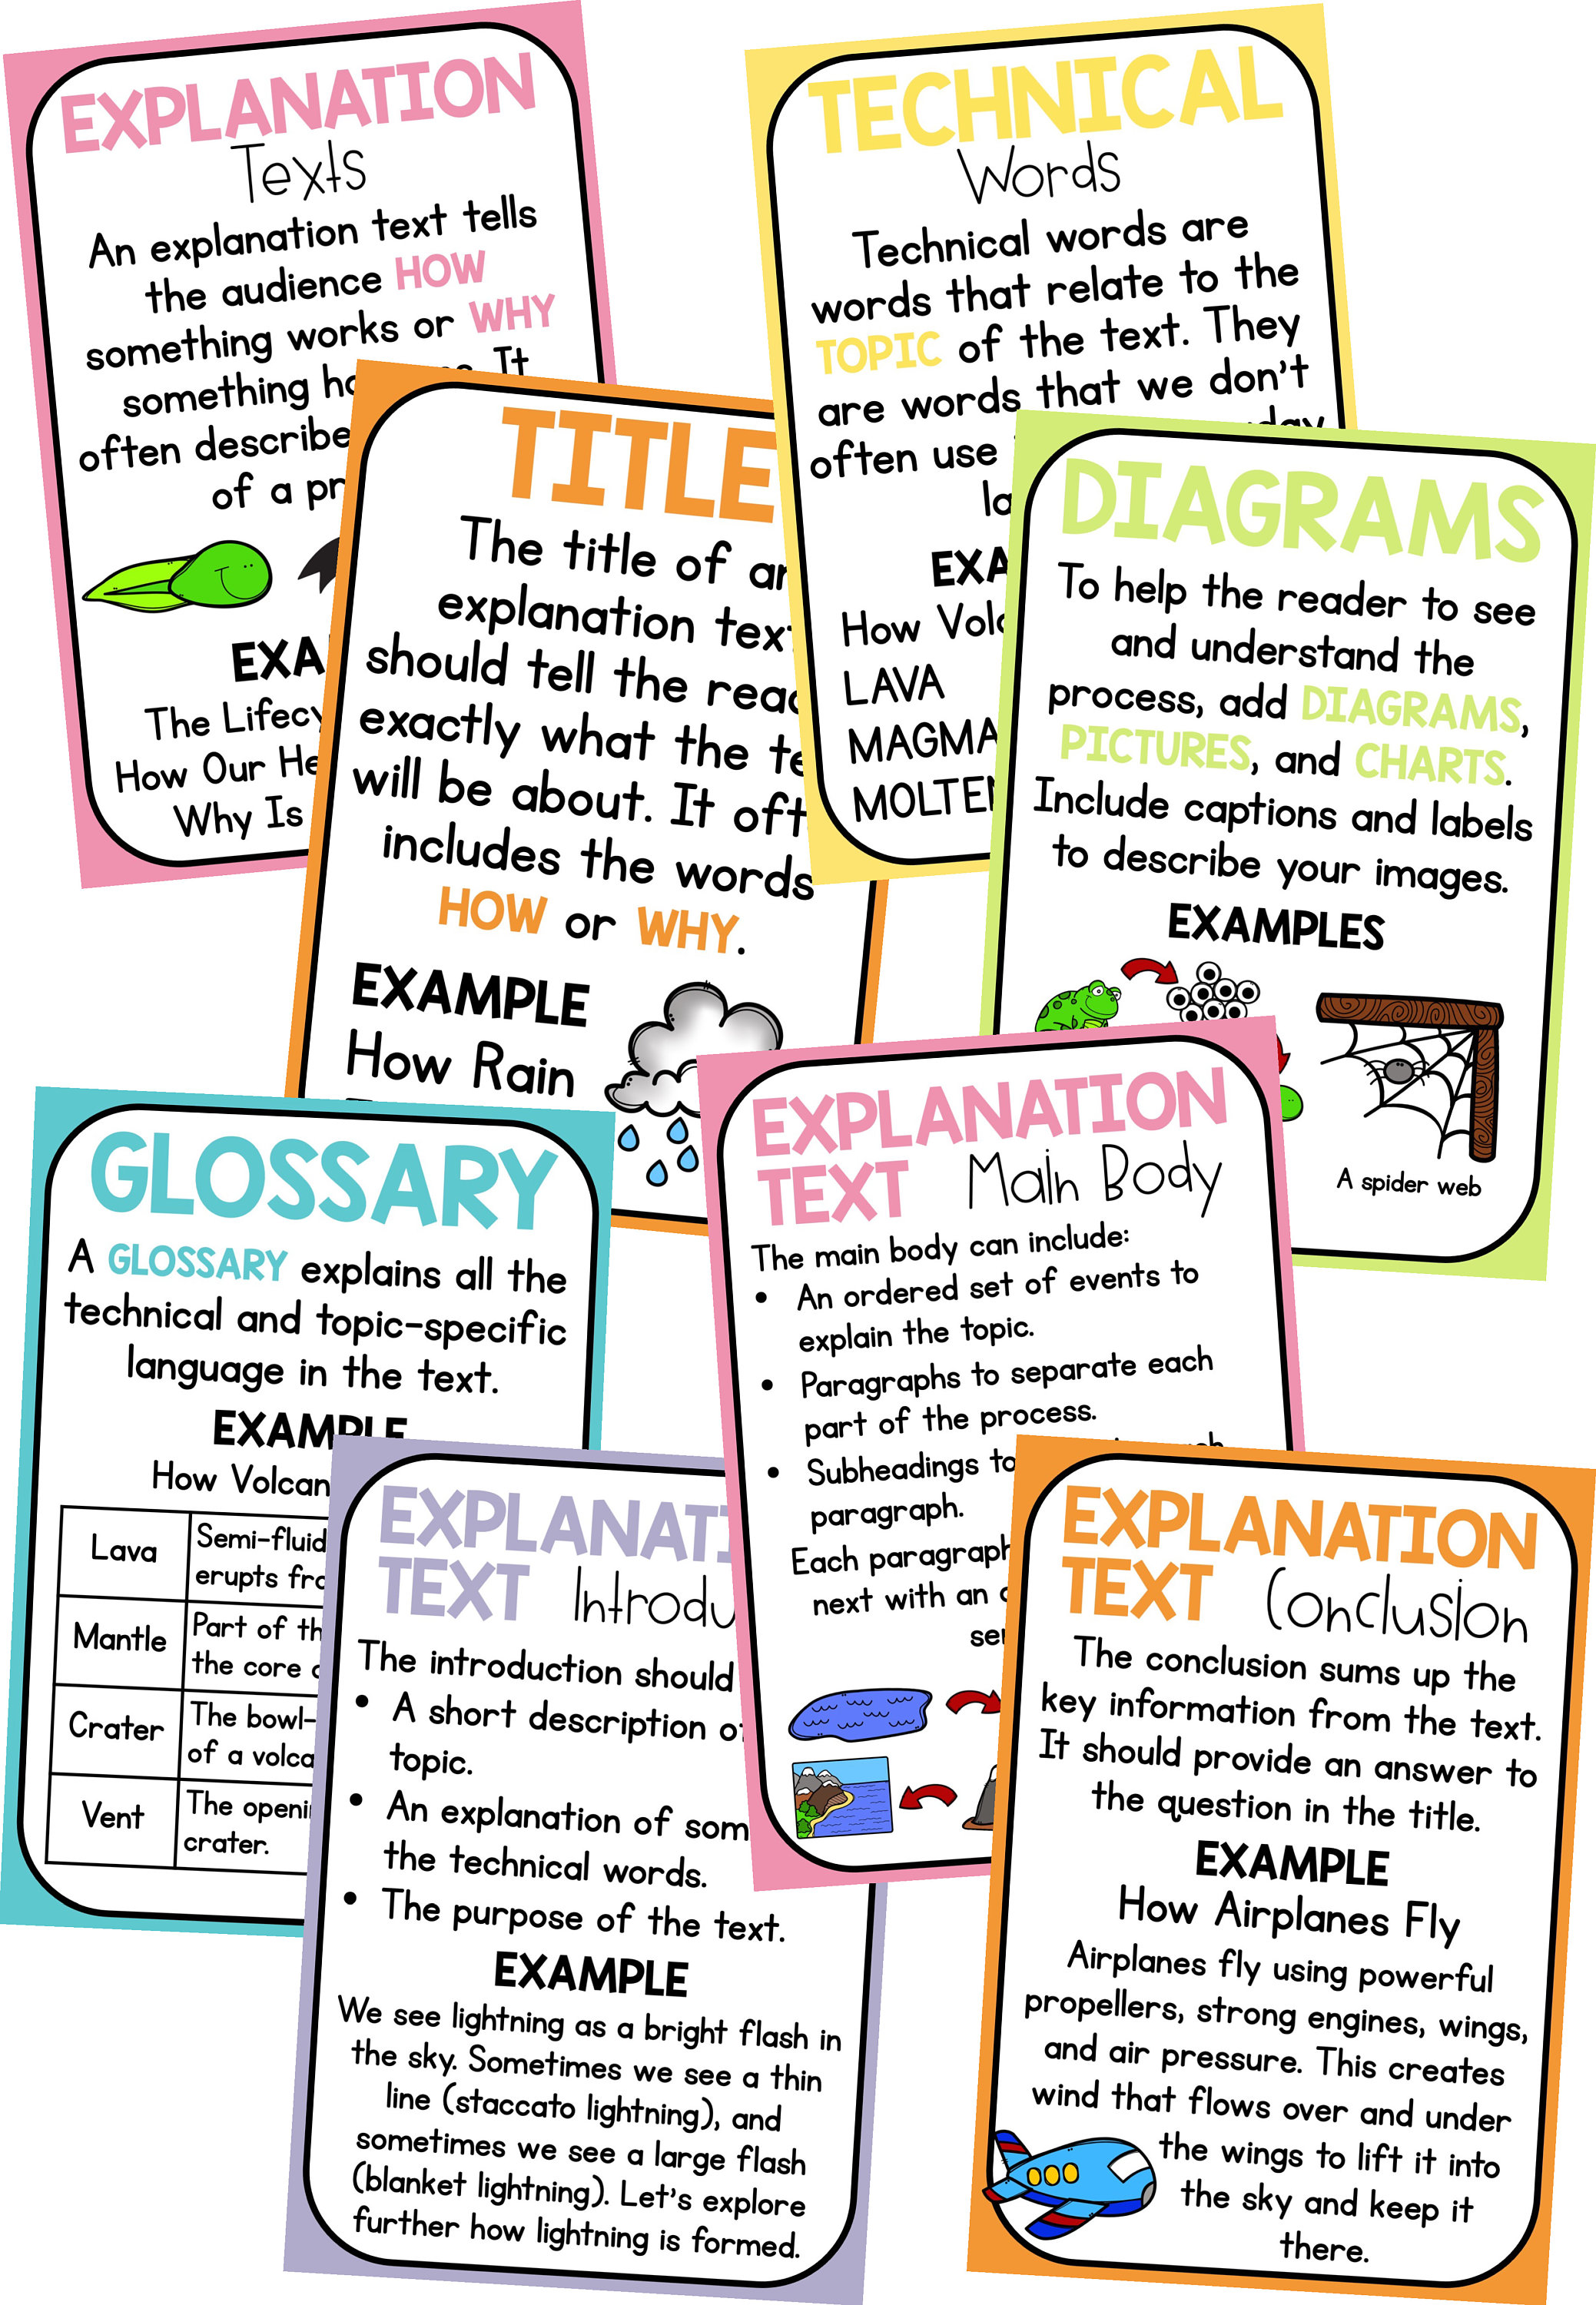 EXPLANATION
Texts
An explanation text tells
the audience HOW
something works or WHY
something It
often describe
of a
The
How Our
Why Is
TECHNICAL
Words
Technical words are
words that relate to the
TOPIC of the text. They
are words that we don't
often use
How
LAVA
MAGMA
MOLTEN
TITLE
The title of an
explanation text
should tell the
exactly what the
will be about. It
includes the words
HOW or WHY.
EXAMPLE
How Rain
DIAGRAMS
To help the reader to see
and understand the
process, add DIAGRAMS,
PICTURES, and CHARTS.
Include captions and labels
to describe your images.
EXAMPLES
A spider web
GLOSSARY
A GLOSSARY explains all the
technical and topic-specific
language in the text.
EXAMPLE
How
Lava
Semi-fluid
erupts
Mantle
Part of
the core
Crater
The
of a
Vent
The
crater.
EXPLANATION
TEXT Main Body
The main body can include:
• An ordered set of events to
explain the topic.
• Paragraphs to separate each
part of the process.
• Subheadings to
paragraph.
Each paragraph
next with an
EXPLANATI
TEXT
The introduction should
• A short description
topic.
• An explanation of
the technical words.
• The purpose of the text.
EXAMPLE
We see lightning as a bright flash in
the sky. Sometimes we see a thin
line (staccato lightning), and
sometimes we see a large flash
(blanket lightning). Let's explore
further how lightning is formed.
EXPLANATION
TEXT Conclusion
The conclusion sums up the
key information from the text.
It should provide an answer to
the question in the title.
EXAMPLE
How Airplanes Fly
Airplanes fly using powerful
propellers, strong engines, wings,
and air pressure. This creates
wind that flows over and under
the wings to lift it into
the sky and keep it
there.